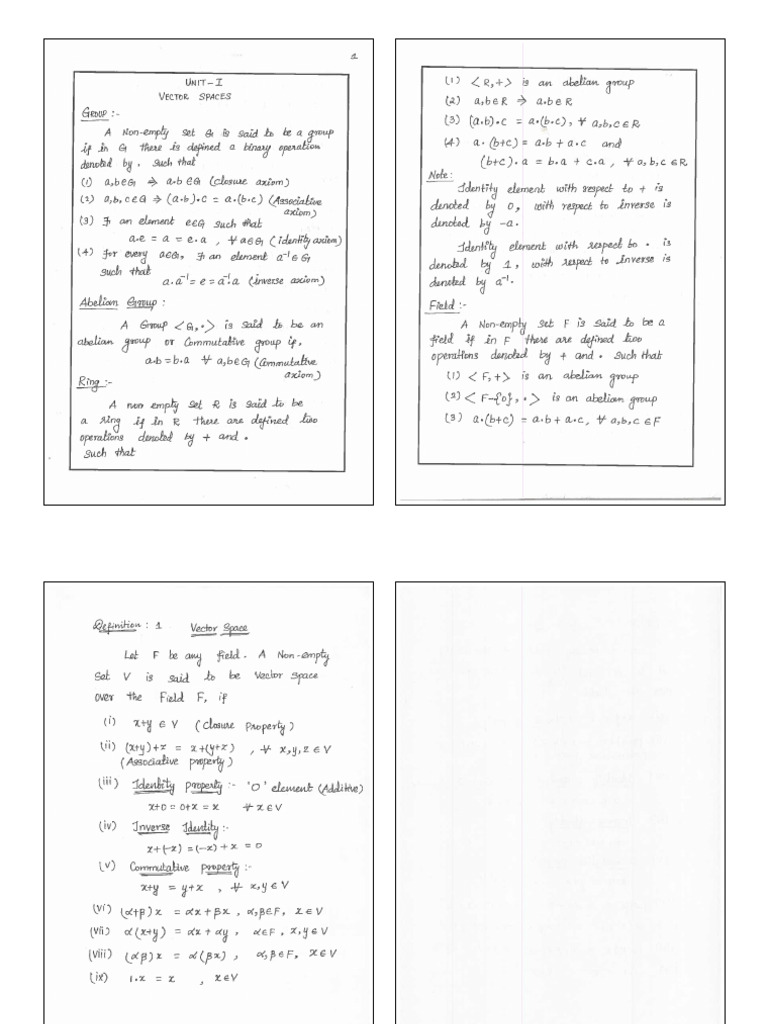 1
UNIT-I
VECTOR SPACES
Group :-
A Non-empty set G is said to be a group
if in G there is defined a binary operation
denoted by . such that
(1) a,b∈G ⇒ a.b∈G (closure axiom)
(2) a,b,c∈G ⇒ (a.b).c = a.(b.c) (Associative
axiom)
(3) ∃ an element e∈G such that
a.e = a = e.a , ∀ a∈G (identity axiom)
(4) for every a∈G, ∃ an element a⁻¹∈G
such that
a.a⁻¹ = e = a⁻¹.a (inverse axiom)
Abelian Group :
A Group <G,.> is said to be an
abelian group or Commutative group if,
a.b = b.a ∀ a,b∈G (Commutative
axiom)
Ring :-
A non empty set R is said to be
a ring if in R there are defined two
operations denoted by + and .
such that
(1) <R,+> is an abelian group
(2) a,b∈R ⇒ a.b∈R
(3) (a.b).c = a.(b.c), ∀ a,b,c∈R
(4) a.(b+c) = a.b + a.c and
(b+c).a = b.a + c.a , ∀ a,b,c∈R
Note:
Identity element with respect to + is
denoted by 0, with respect to inverse is
denoted by -a.
Identity element with respect to . is
denoted by 1, with respect to inverse is
denoted by a⁻¹.
Field :-
A Non-empty set F is said to be a
field if in F there are defined two
operations denoted by + and . such that
(1) <F,+> is an abelian group
(2) <F-{0}, .> is an abelian group
(3) a.(b+c) = a.b + a.c, ∀ a,b,c∈F
Definition : 1 Vector Space
Let F be any field. A Non-empty
Set V is said to be Vector Space
over the Field F, if
(i) x+y ∈ V (Closure Property)
(ii) (x+y)+z = x+(y+z) , ∀ x,y,z ∈V
(Associative property)
(iii) Identity property :- '0' element (Additive)
x+0 = 0+x = x ∀ x∈V
(iv) Inverse Identity :-
x+(-x) = (-x)+x = 0
(v) Commutative property :-
x+y = y+x , ∀ x,y∈V
(vi) (α+β)x = αx+βx , α,β∈F, x∈V
(vii) α(x+y) = αx + αy, α∈F, x,y∈V
(viii) (αβ)x = α(βx) , α,β∈F, x∈V
(ix) 1.x = x , x∈V